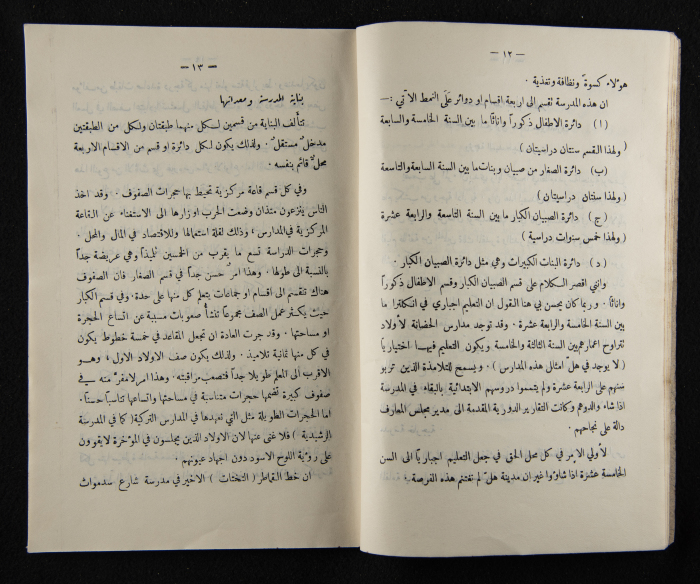 — ١٢ —
هؤلاء كسوةً ونظافة وتغذية .
ان هذه المدرسة تقسم الى اربعة اقسام او دوائر عَلَى النمط الآتي :—
( ا ) دائرة الاطفال ذكوراً واناثاً ما بين السنة الخامسة والسابعة
( ولهذا القسم سنتان دراسيتان )
( ب ) دائرة الصغار من صبيان وبنات ما بين السنة السابعة والتاسعة
( ولهذا سنتان دراسيتان )
( ج ) دائرة الصبيان الكبار ما بين السنة التاسعة والرابعة عشرة
( ولهذا خمس سنوات دراسية )
( د ) دائرة البنات الكبيرات وهي مثل دائرة الصبيان الكبار .
وانني اقصر الكلام على قسم الصبيان الكبار وقسم الاطفال ذكوراً
واناثاً . وربما كان يحسن بي هنا القول ان التعليم اجباري في انكلترا ما
بين السنة الخامسة والرابعة عشرة . وقد توجد مدارس الحضانة لأولاد
تتراوح اعمارهم بين السنة الثالثة والخامسة ويكون التعليم فيها اختيارياً
( لا يوجد في هلّ امثال هذه المدارس ) . ويسمح للتلامذة الذين تربو
سنهم على الرابعة عشرة ولم يتمموا دروسهم الابتدائية بالبقاء في المدرسة
اذا شاءوا الدوام وكانت التقارير الدورية المقدمة الى مدير مجلس المعارف
دالة على نجاحهم .
لأولي الامر في كل محل الحق في جعل التعليم اجبارياً الى السن
الخامسة عشرة اذا شاؤوا غير ان مدينة هلّ لم تغتنم هذه الفرصة .
— ١٣ —
بناية المدرسة ومعداتها
تتألف البناية من قسمين لكل منهما طبقتان ولكل من الطبقتين
مدخلٌ مستقلٌ . ولذلك يكون لكل دائرة او قسم من الاقسام الاربعة
محلٌ قائم بنفسه .
وفي كل قسم قاعة مركزية تحيط بها حجرات الصفوف . وقد اخذ
الناس ينزعون منذ ان وضعت الحرب اوزارها الى الاستغناء عن القاعة
المركزية في المدارس ؛ وذلك لقلة استعمالها وللاقتصاد في المال والمحل .
وحجرات الدراسة تسع ما يقرب من الخمسين تلميذاً وهي عريضة جداً
بالنسبة الى طولها . وهذا امرٌ حسن جداً في قسم الصغار فان الصفوف
هناك تنقسم الى اقسام او جماعات يتعلم كل منها على حدة، وفي قسم الكبار
حيث يكثر عمل الصف مجموعاً تنشأ صعوبات مسببة عن اتساع الحجرة
او مساحتها . وقد جرت العادة ان تجعل المقاعد في خمسة خطوط يكون
في كل منها ثمانية تلاميذ . ولذلك يكون صف الاولاد الاول ؛ وهو
الاقرب الى المعلم طويلاً جداً فتصعب مراقبته . وهذا امر لا مفرّ منه في
صفوف كبيرة تضمها حجرات متناسبة في مساحتها واتساعها تناسباً حسناً.
اما الحجرات الطويلة مثل التي نعهدها في المدارس التركية ( كما في المدرسة
الرشيدية ) فلا غنى عنها لان الاولاد الذين يجلسون في المؤخرة لا يقوون
على رؤية اللوح الاسود دون اجهاد عيونهم .
ان خط القماطر ( التختات ) الاخير في مدرسة شارع سدمواث